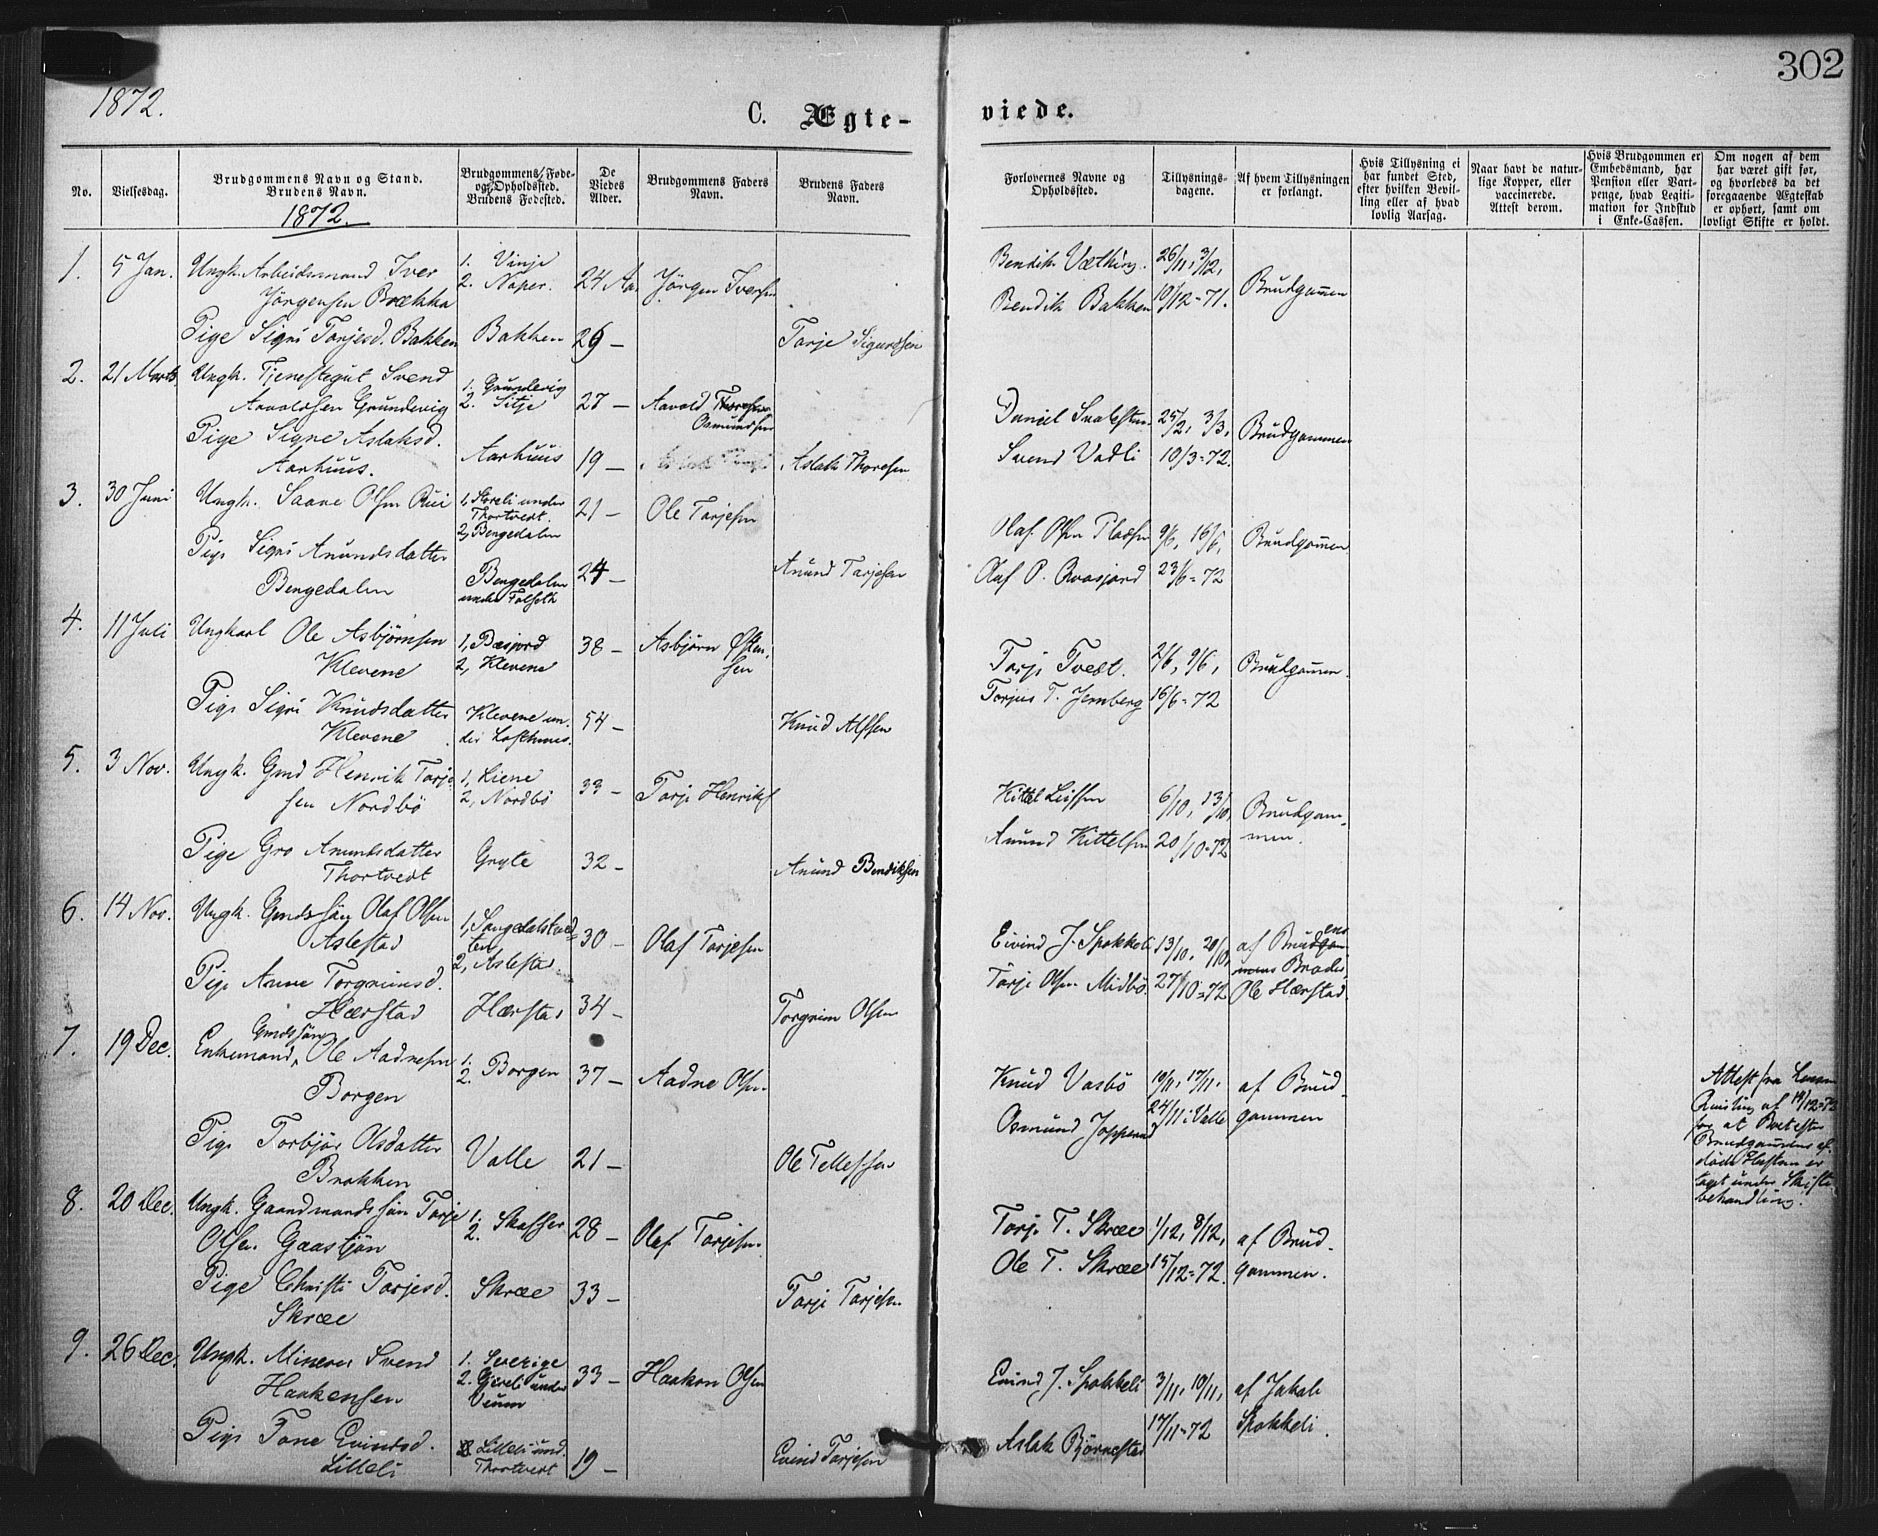 302
1872.
C. Ægte-
viede.
No.
Vielsesdag.
Brudgommens Navn og Stand.
Brudens Navn.
Brudgommens Føde-
og Opholdssted.
Brudens Fødested.
De
Viedes
Alder.
Brudgommens Faders
Navn.
Brudens Faders
Navn.
Forlovernes Navne og
Opholdssted.
Tillysnings-
dagene.
Af hvem Tillysningen
er forlangt.
Hvis Tillysning ei
har fundet Sted,
efter hvilken Bevil-
ling eller af hvad
lovlig Aarsag.
Naar havt de natur-
lige Kopper, eller
vaccinerede.
Attest derom.
Hvis Brudgommen er
Embedsmand, har
Pension eller Vart-
penge, hvad Legiti-
mation for Indskud
i Enke-Cassen.
Om nogen af dem
har været gift før,
og hvorledes da det
foregaaende Ægteskab
er ophørt, samt om
lovligt Skifte er holdt.
1872.
1. 5 Jan. Ungk. Arbeidsmand Iver 1. Vinje 24 Aa. Jörgen Iversen
Jörgensen Brække 2. Naper.
Bendik Vætting. 26/11, 3/12,
Bendik Bakken 10/12-71. Brudgommen
Pige Signe Torjesd. Bakken Bakken 26 – Torje Sigurdsen
2. 21 Marts Ungk. Tjenestegut Svend 1. Grundevig
Aavoldsen Grundevig 2. Sitje 27 – Aavold
Osmundsen
Daniel 25/2, 3/3,
Svend Vadli 10/3-72. Brudgommen
Pige Signe Aslaksd.
Aarhuus. Aarhuus 19 – Aslak Thoresen
3. 30 Juni Ungk. Saave Olsen Rui 1, Storeli under 21 – Ole Torjesen
Thortvedt.
2, Bengedalen
Olaf Olsen Pladsen 9/6, 16/6, Brudgommen
Olaf P. 23/6-72
Pige Signe Anundsdatter
Bengedalen Bengedalen 24 – Anund Torjesen
under Falseth
4. 11 Juli Ungkarl Ole Asbjörnsen 1, 38 – Asbjörn Östen-
Klevene 2, Klevene sen
Torje Tvedt. 2/6, 9/6, Brudgommen.
Torjus T. Jernberg 16/6-72
Pige Signe Knudsdatter Klevene un- 54 – Knud Alfsen
Klevene der Lofthuus.
5. 3 Nov. Ungk. Gmd Henrik Torje- 1, Liene 33 – Torje Henriks
sen Nordbö 2, Nordbö
Kittel 6/10, 13/10, Brudgom-
Anund Kittelsen 20/10-72 men.
Pige Gro Anundsdatter Gryte 32 – Anund Bendiksen
Thortvedt
6. 14 Nov. Ungk. Gmdssön Olaf Olsen 1, 30 – Olaf Torjesen
Aslestad 2, Aslestad
Eivind J. Spokkeli 13/10, 20/10, af Brudens
Torje Olsen Midbö. 27/10-72 Broder
Ole Hærstad
Pige Anne Torgrimsd.
Hærstad Hærstad 34 – Torgrim Olsen
7. 19 Dec. Enkemand, Gmdssön Ole Aadnesen 1. 2. Borgen 37 – Aadne Olsen
Borgen
Knud Vasbö 10/11, 17/11, af Brud-
Osmund 24/11 i Valle gommen
Attest fra
af 14/12-72
for at Boet efter
Brudgommens af-
döde Hustru er
taget under Skifte-
behandling.
Pige Torbjör Olsdatter
Brokken Valle 21 – Ole Tellefsen
8. 20 Dec. Ungk. Gaardmandssön Torje 1. 2. Skafser 28 – Olaf Torjesen.
Olsen Gaastjön
Torje T. Skræe 1/12, 8/12, af Brud-
Ole T. Skræe 15/12-72. gommen.
Pige Christi Torjesd.
Skræe Skræe 33 – Torje Torjesen
9. 26 Dec. Ungk. Minerer Svend 1. Sverige
Haakensen 2. under 33 – Haakon Olsen
Veum
Eivind J. Spokkeli 3/11, 10/11, af Jakob
Aslak Björnestad 17/11-72 Spokkeli.
Pige Tone Eivindsd.
Lilleli Lilleli und. 19 – Eivind Torjesen
Thortvedt